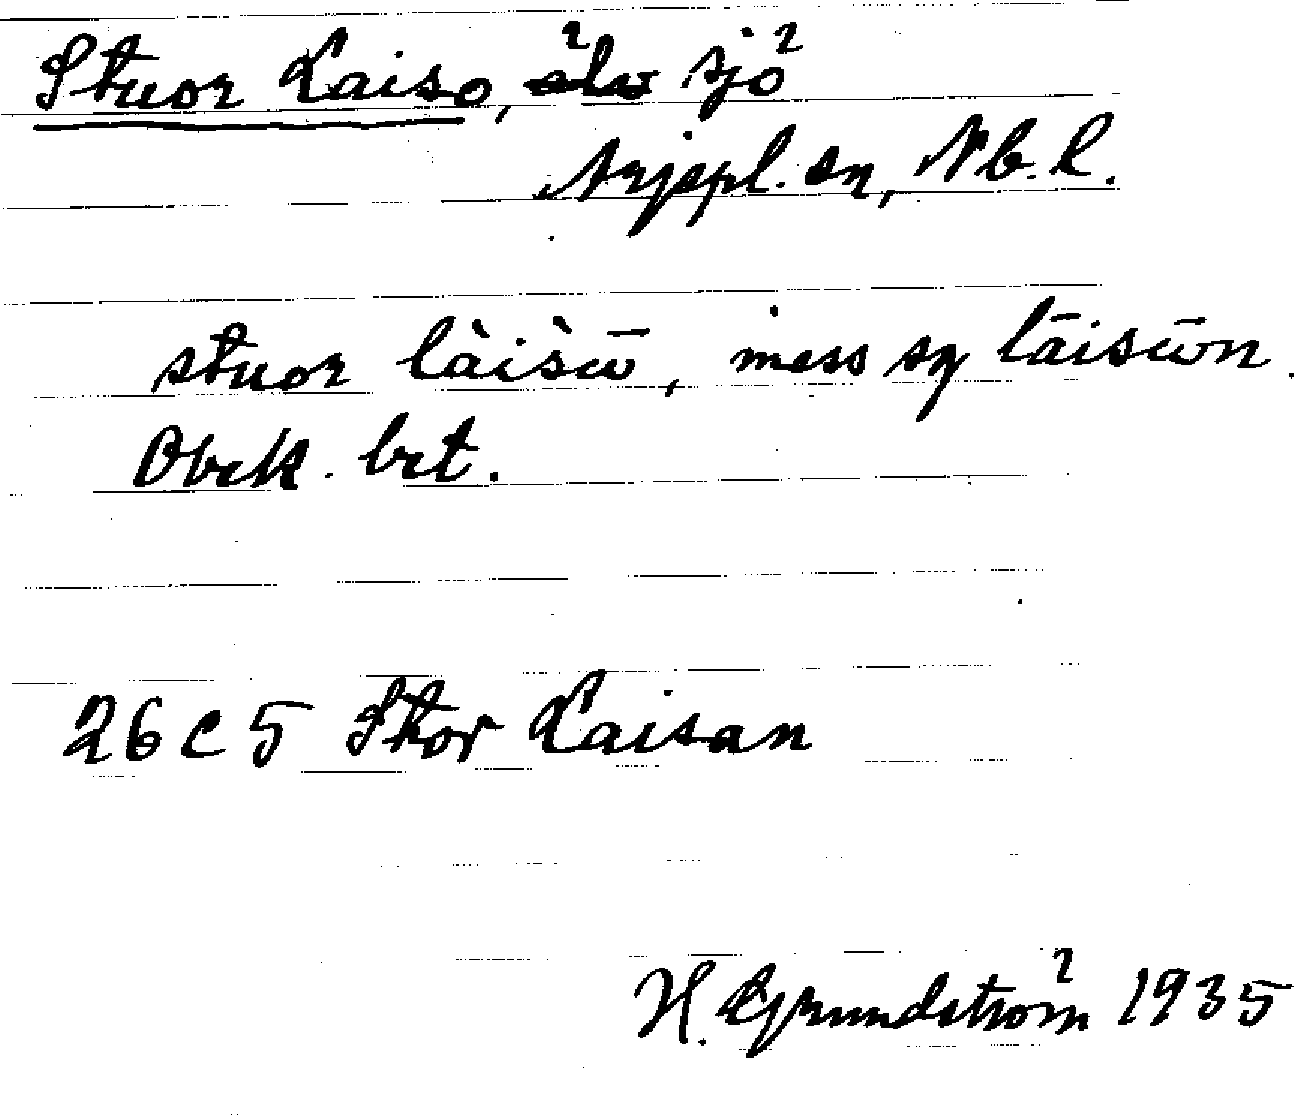 Stuor Laiso, sjö
Arjepl. sn, Nb. l.
stuor làisѝω̄, iness sg lāisω̄n.
Obek. bet.
26 C 5 Stor Laisan
H. Grundström 1935